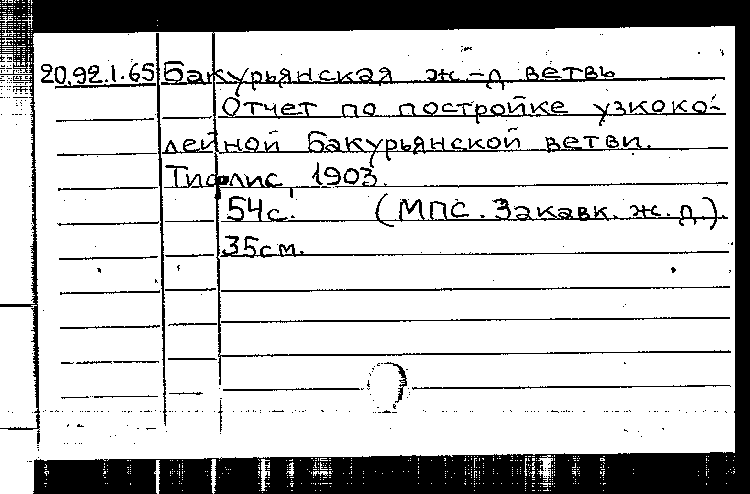 20.92.1.65 Бакурьянская ж-д ветвь
Отчет по постройке узкоко-
лейной Бакурьянской ветви.
Тифлис, 1903.
54с. (МПС. Закавк. ж. д.).
35см.